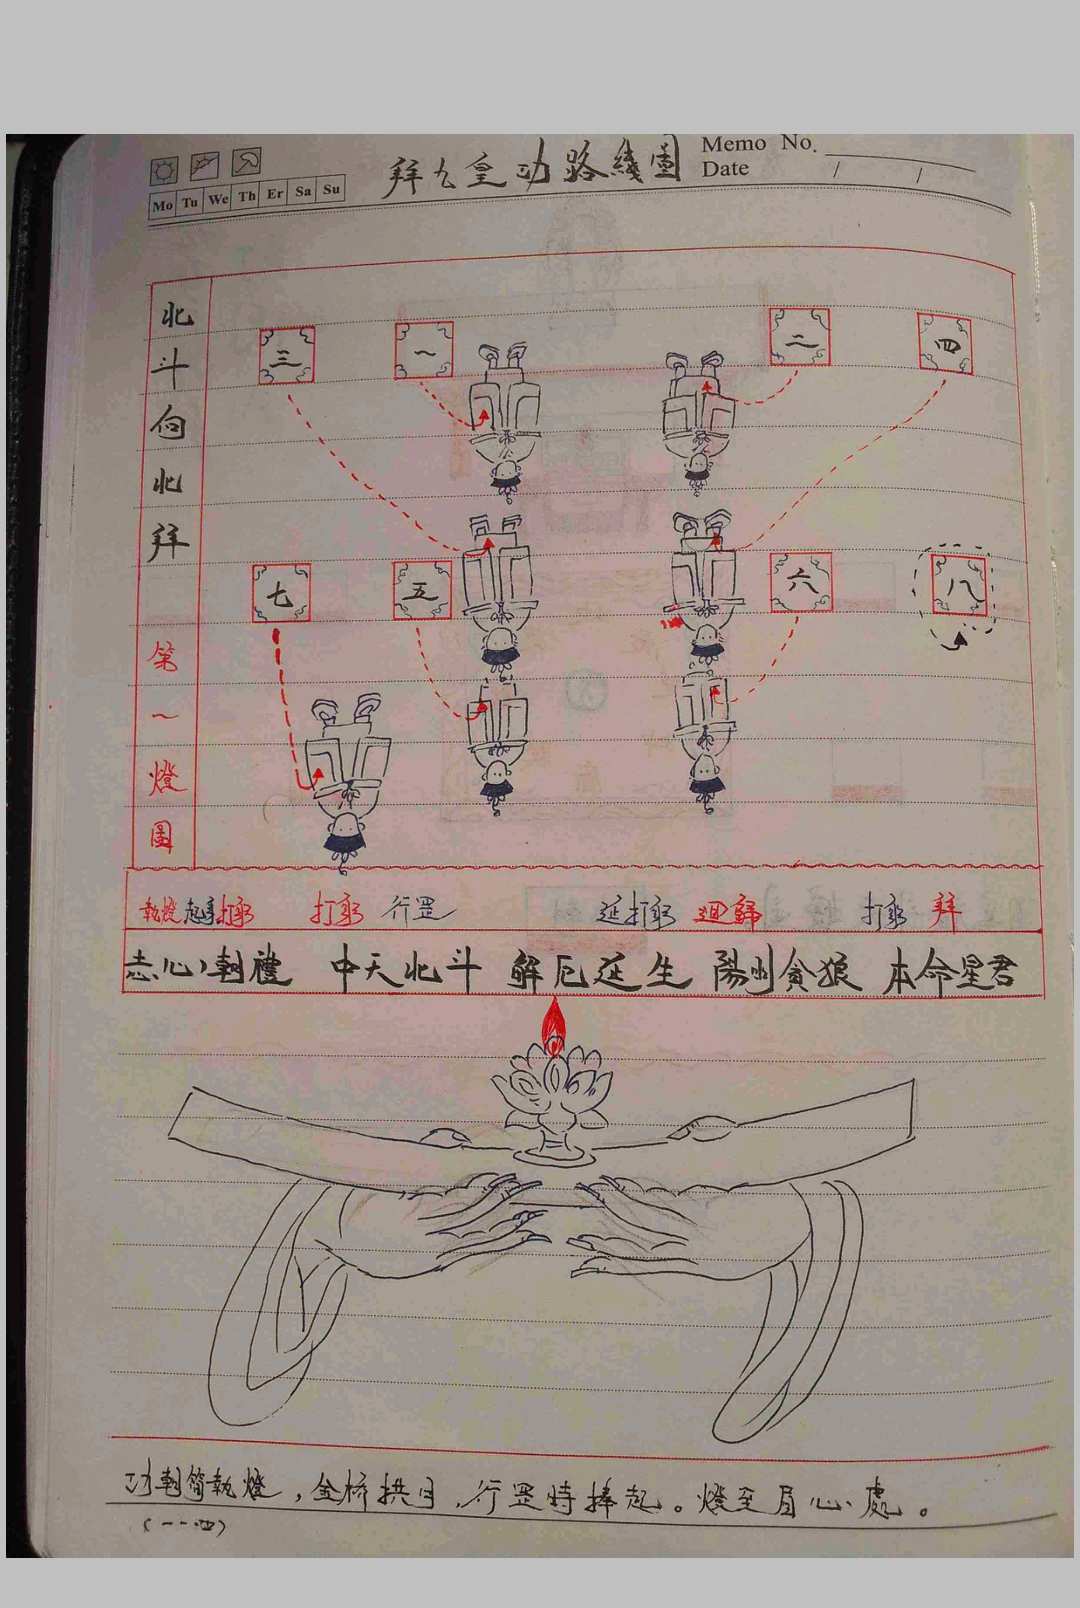 Memo No.
Date / /
Mo Tu We Th Er Sa Su
拜九皇功路綫圖
北斗向北拜
第一燈圖
三 一 二 四
七 五 六 八
執燈 起身 打躬 打躬 行罡 延打躬 迴歸 打躬 拜
志心朝禮 中天北斗 解厄延生 陽明貪狼 本命星君
功朝簡執燈，金橋拱月，行罡時捧起。燈至眉心處。
(一·四)